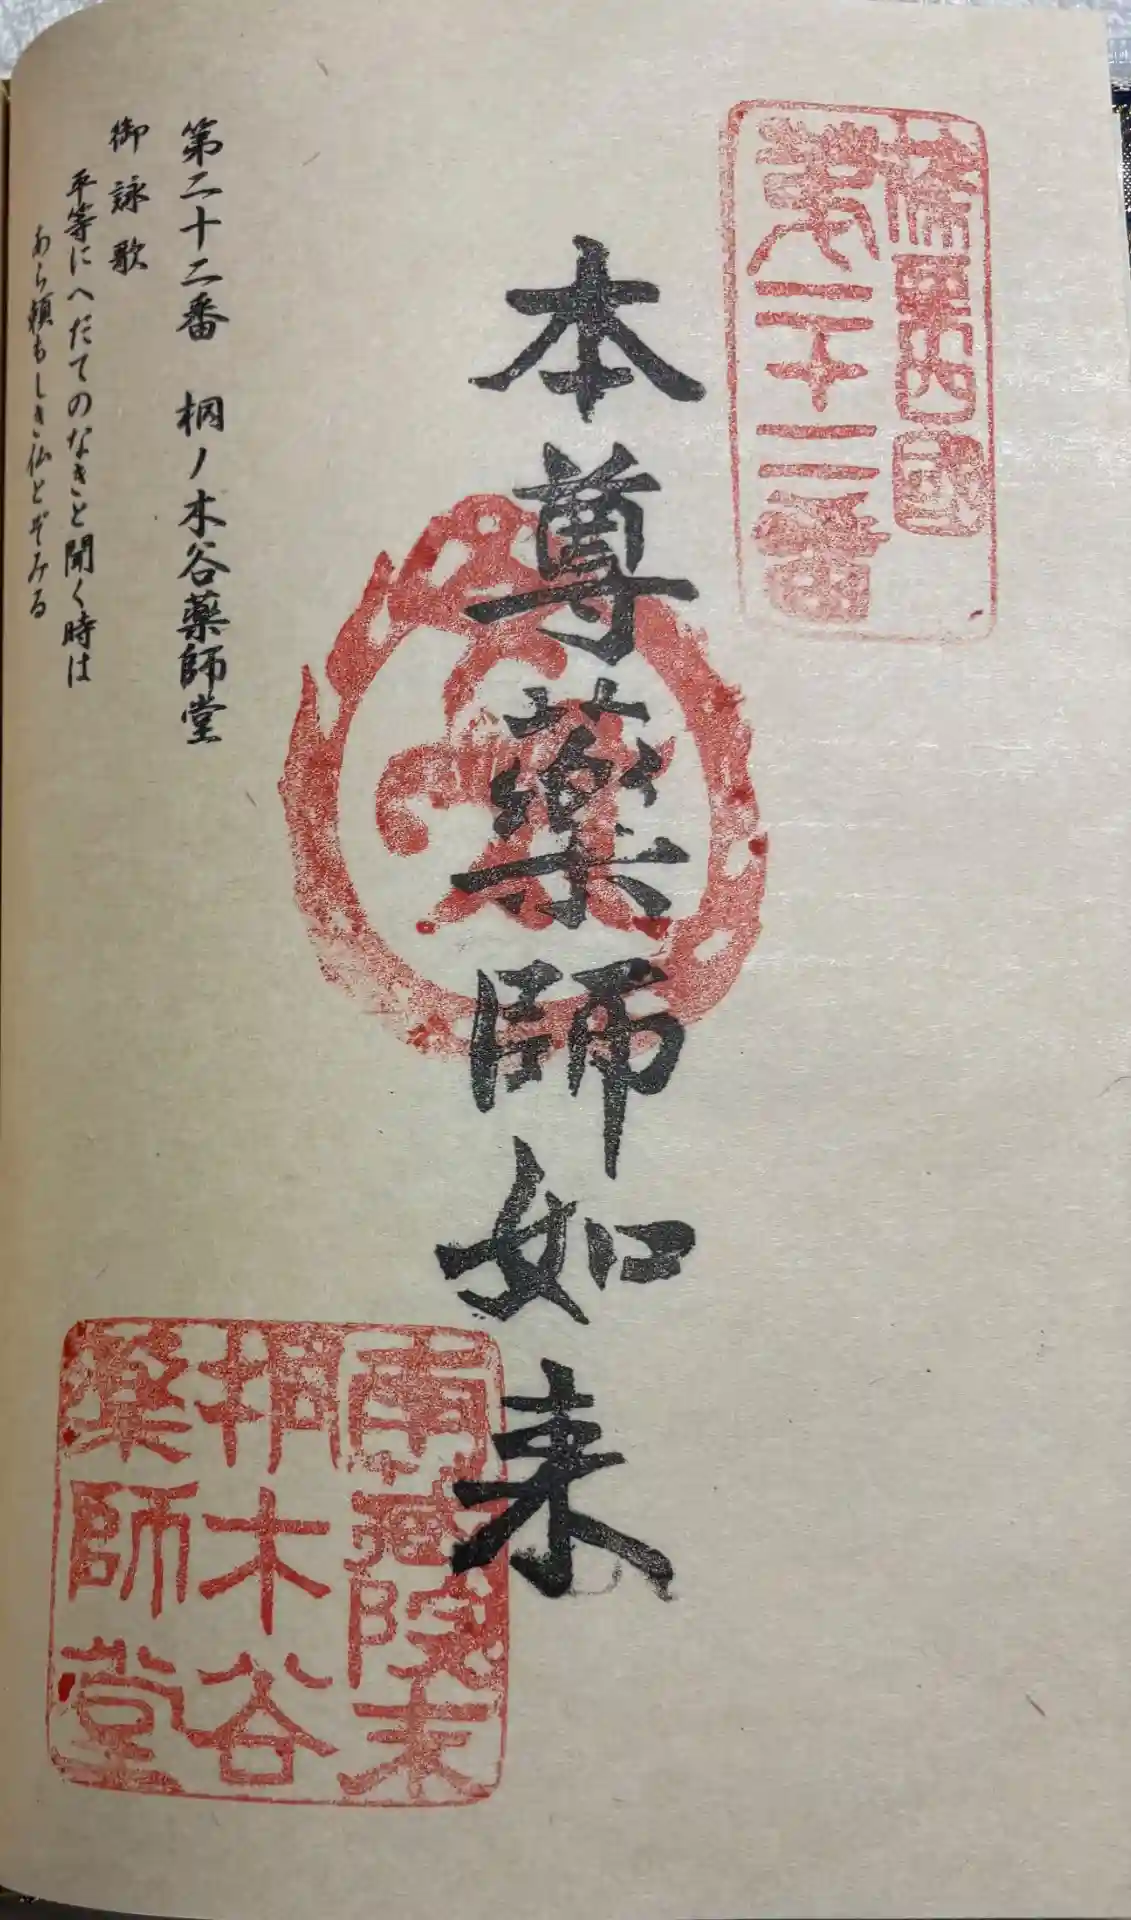 篠栗四國
第二十二番
本尊薬師如来
第二十二番　桐ノ木谷薬師堂
御詠歌
平等にへだてのなきと聞く時は
あら頼もしき仏とぞみる
南蔵院末
桐木谷
薬師堂